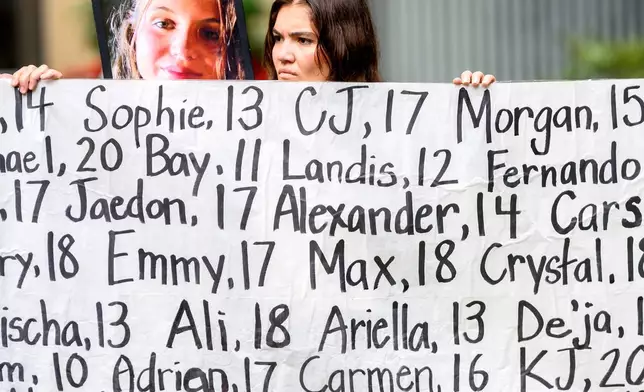 , 14 Sophie, 13 CJ, 17 Morgan, 15
ael, 20 Bay, 11 Landis, 12 Fernando
, 17 Jaedon, 17 Alexander, 14 Cars
ry, 18 Emmy, 17 Max, 18 Crystal, 18
ischa, 13 Ali, 18 Ariella, 13 De'ja, 1
m, 10 Adrian, 17 Carmen, 16 KJ, 20